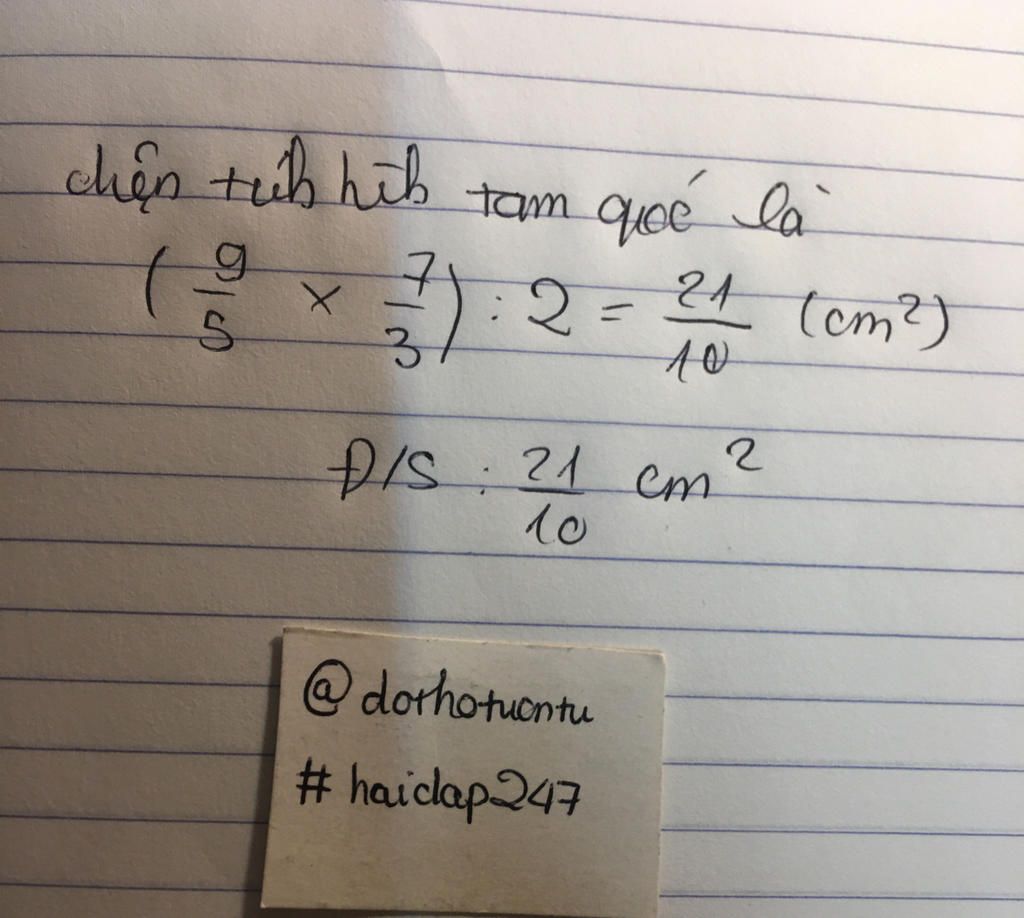 diện tích hình tam giác là
( 9/5 × 7/3 ) : 2 = 21/10 (cm²)
Đ/S : 21/10 cm²
@dothotuontu
#haidap247